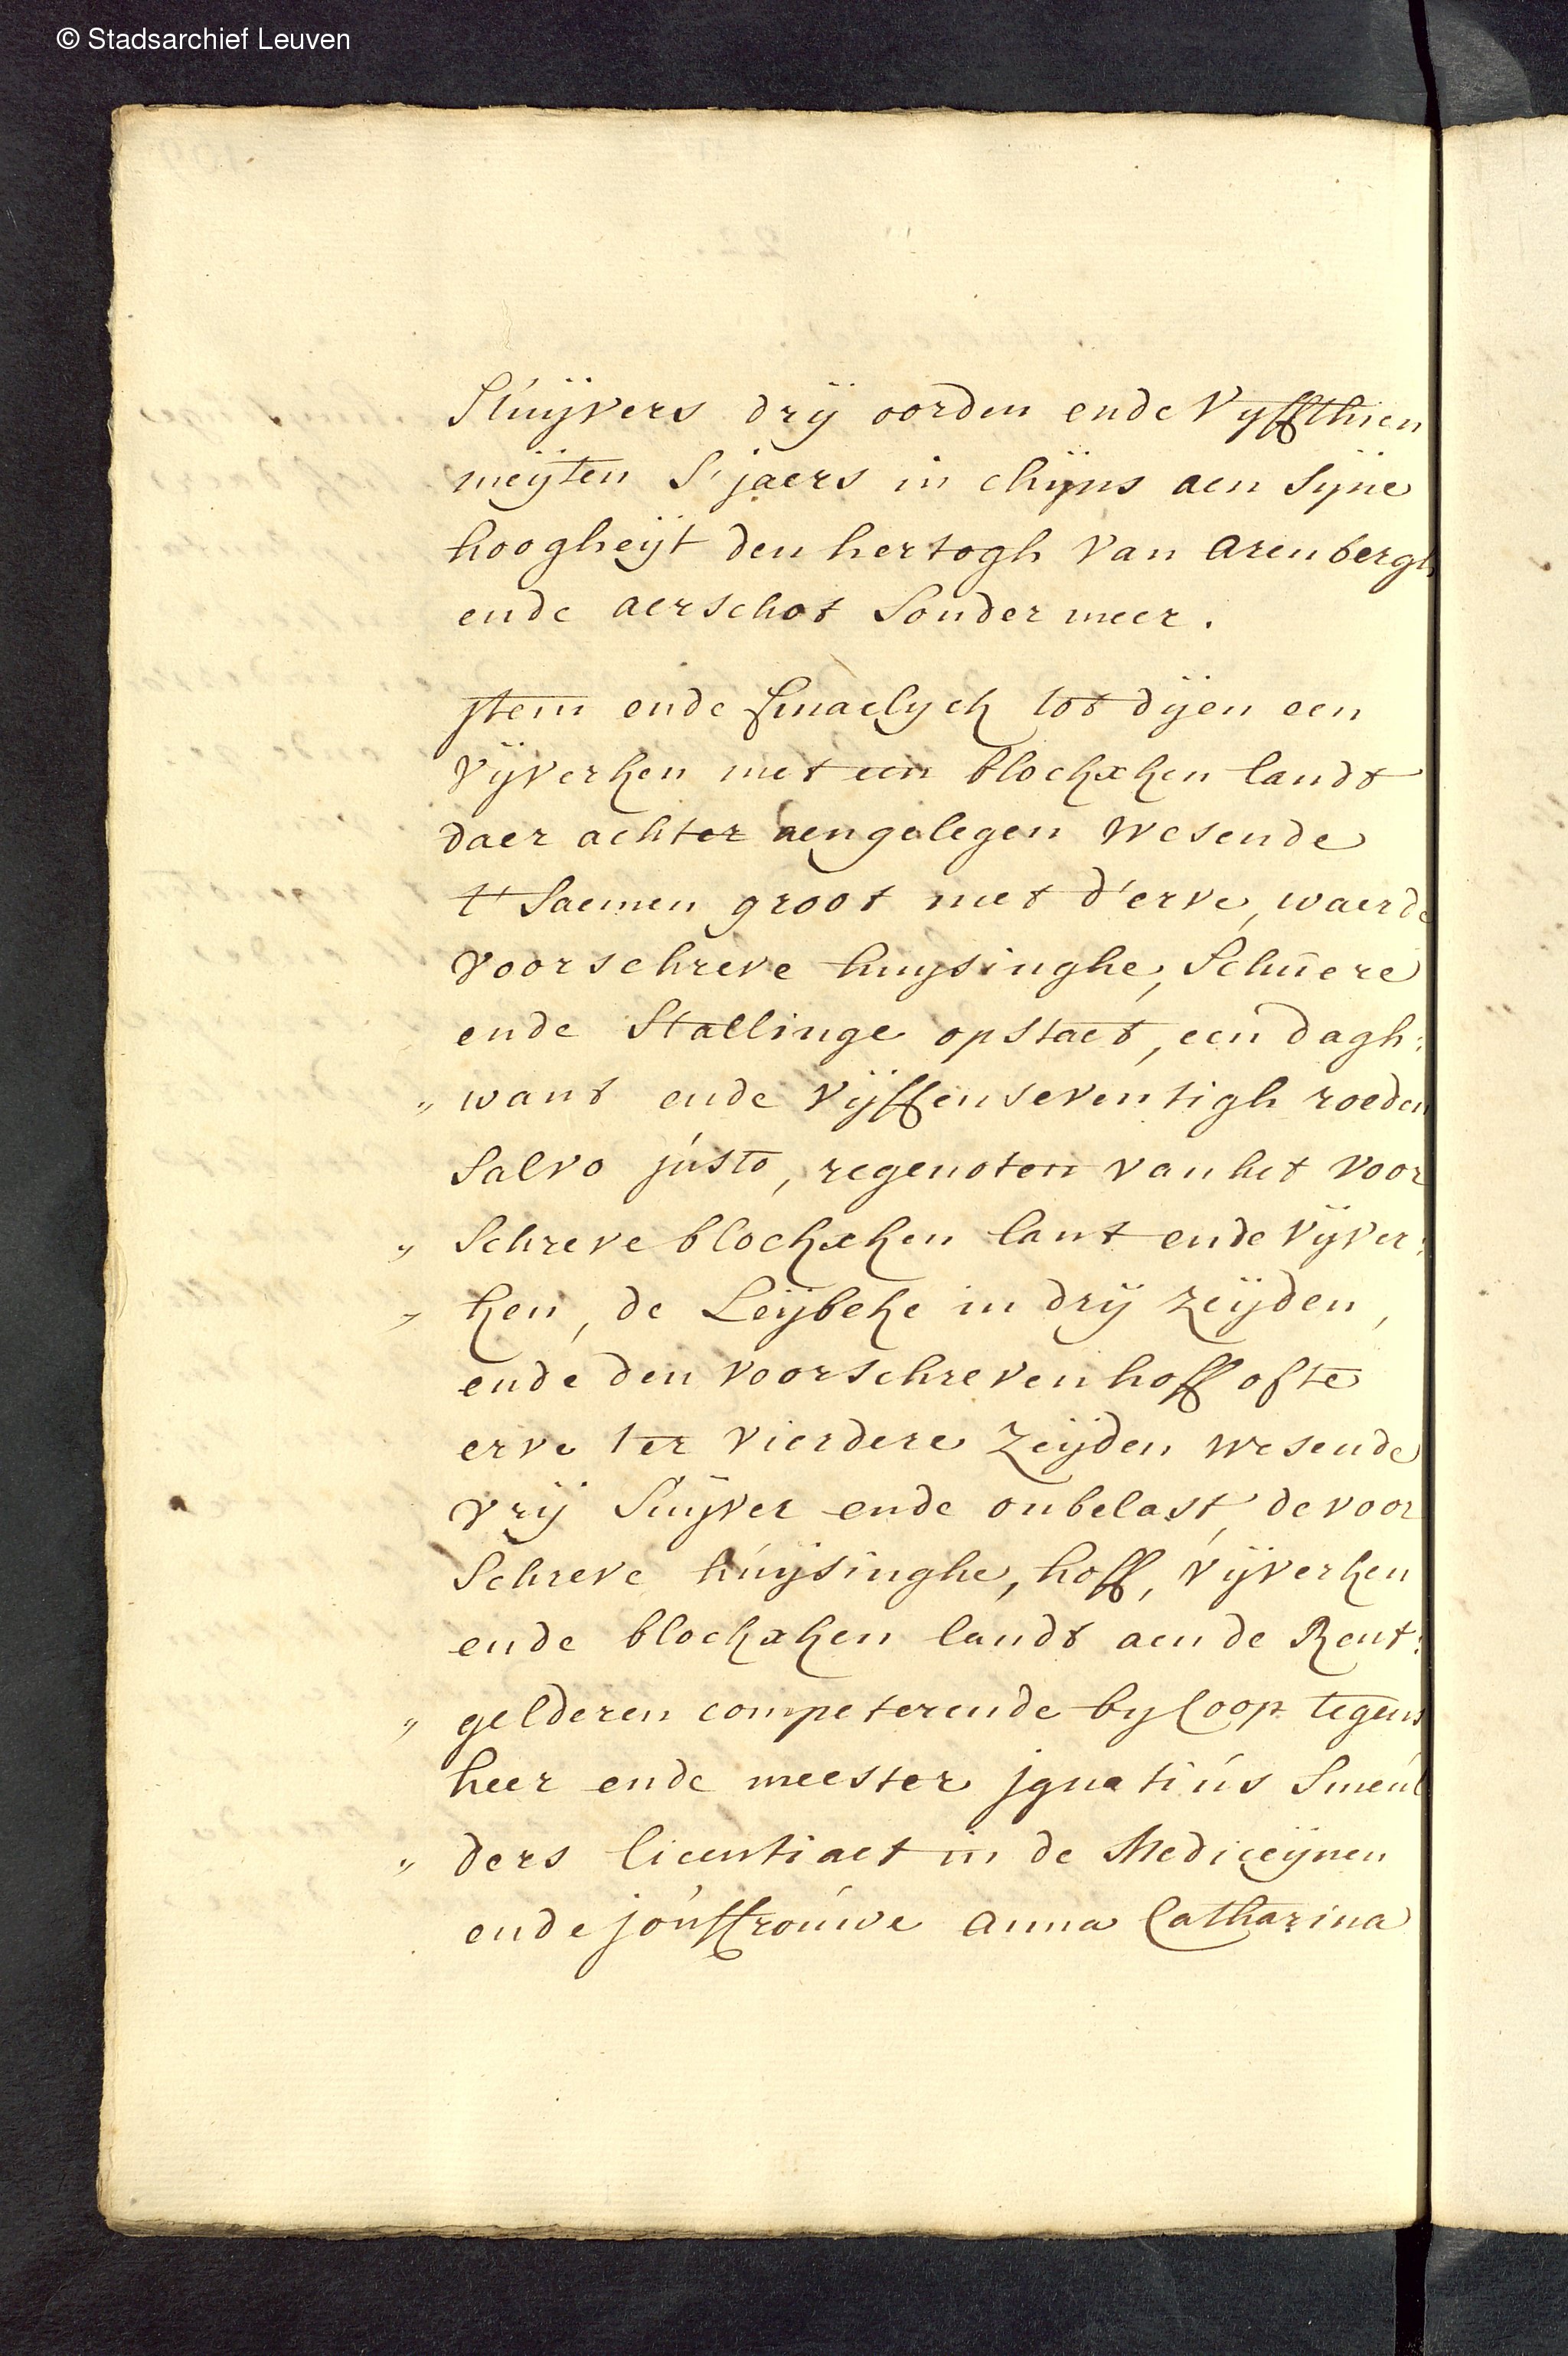 © Stadsarchief Leuven
Stuÿvers drÿ oorden ende Vyffthien
meÿten S'jaers in chÿns aen Sÿne
hoogheÿt den hertogh Van Arenbergh
ende aerschot Sonder meer.
Jtem ende finaelyck tot dÿen een
Vÿverken met een blockxken landt
daer achter aengelegen wesende
t'Saemen groot met d'erve, waer de
voorschreve huysinghe, Schuere
ende Stallinge opstaet, een dagh:
„ want ende vÿffenseventigh roeden
Salvo justo, regenoten van het voor
„ Schreve blockxken lant ende vÿver:
„ ken, de Leÿbeke in drÿ zeÿden,
ende den voorschreven hoff ofte
erve ter vierdere Zeÿden wesende
vrÿ Suÿver ende onbelast, de voor
Schreve huÿsinghe, hoff, vÿverken
ende blockxken landt aen de Rent:
„ gelderen competerende by Coop tegens
heer ende meester Jgnatius Smeul
„ ders licentiaet in de Mediceÿnen
ende jouffrouwe Anna Catharina